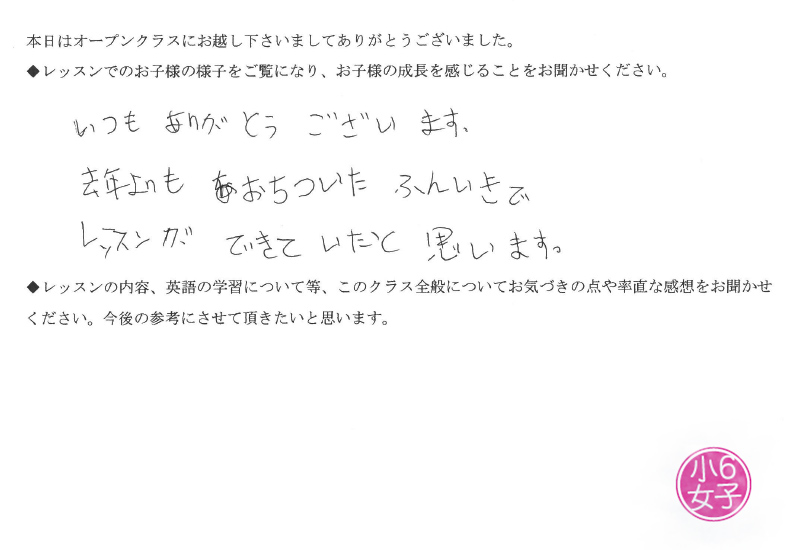 本日はオープンクラスにお越し下さいましてありがとうございました。
◆レッスンでのお子様の様子をご覧になり、お子様の成長を感じることをお聞かせください。
いつも ありがとう ございます。
去年よりも おちついた ふんいきで
レッスンが できて いたと 思います。
◆レッスンの内容、英語の学習について等、このクラス全般についてお気づきの点や率直な感想をお聞かせ
ください。今後の参考にさせて頂きたいと思います。
小6
女子